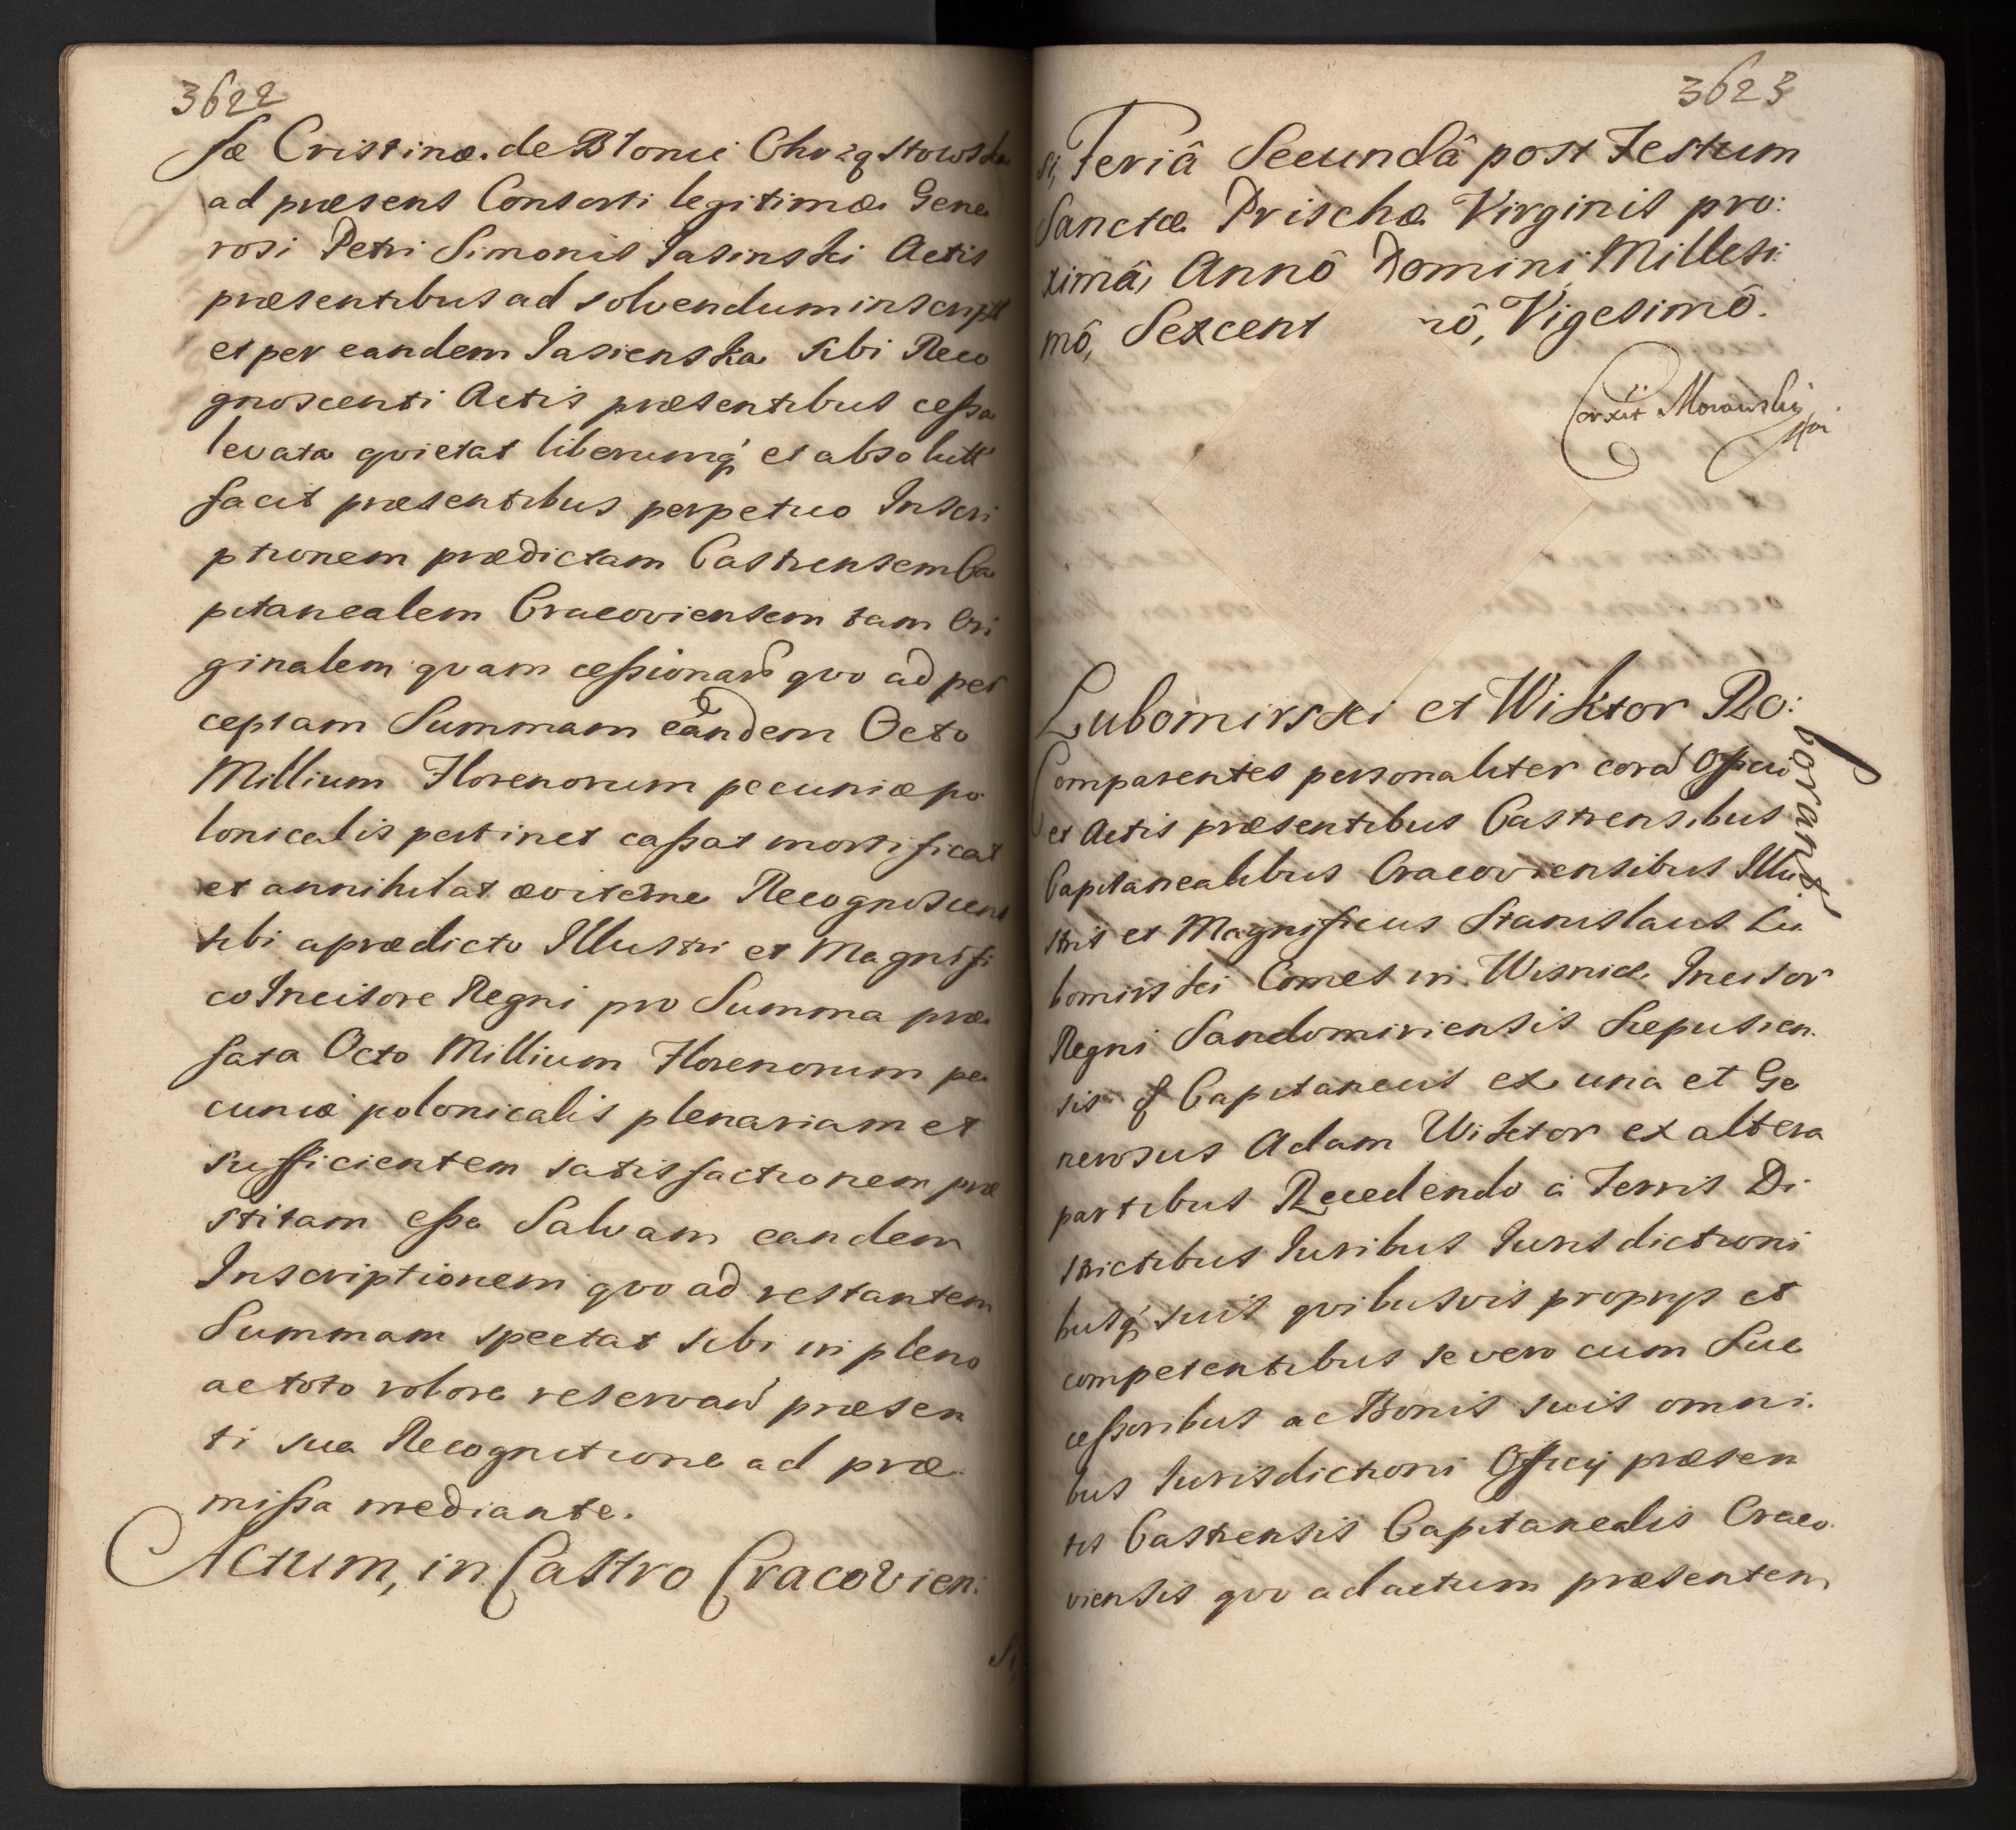 3622
sæ Cristinæ de Blonie Chrząstowska
ad præsens Consorti legitimæ Gene
rosi Petri Simonis Jasinski Actis
præsentibus ad solvendum inscript
et per eandem Jasienska sibi Reco
gnoscenti Actis præsentibus cessa
levata qvietat liberumq́ et absolutt
facit præsentibus perpetuo Inscri
ptionem prædictam Castrensem Ca
pitanealem Cracoviensem tam Ori
ginalem qvam cessionar qvo ad per
ceptam Summam eandem Octo
Millium Florenorum pecuniæ po
lonicalis pertinet cassat mortificat
et annihilat æviterne Recognoscens
sibi a prædicto Illustri et Magnifi
co Incisore Regni pro Summa præ
fata Octo Millium Florenorum pe
cuniæ polonicalis plenariam et
sufficientem satisfactionem præ
stitam esse Salvam eandem
Inscriptionem qvo ad restantem
Summam spectat sibi in pleno
ac toto robore reservan præsen
ti sua Recognitione ad præ
missa mediante.
Actum, in Castro Cracovien:
Si,
3623
si, Feriâ Secundâ post Festum
Sanctæ Prischæ Virginis pro:
ximâ, Annô Domini Millesi:
mô, Sexcent nô, Vigesimô.
Corxit Morawskij
Lubomirski et Wiktor Ro:
borant
Comparentes personaliter cora Officio
et Actis præsentibus Castrensibus
Capitanealibus Cracoviensibus Illu
stris et Magnificus Stanislaus Lu
bomirski Comes in Wisnicz Incisor
Regni Sandomiriensis Scepusien
sis q Capitaneus ex una et Ge
nerosus Adam Wiktor ex altera
partibus Recedendo à Terris Di
strictibus Juribus Jurisdictioni
busq́ suis qvibusvis proprijs et
competentibus se vero cum Suc
cessoribus ac Bonis suis omni
bus Jurisdictioni Officij præsen
tis Castrensis Capitanealis Craco
viensis qvo ad actum præsentem